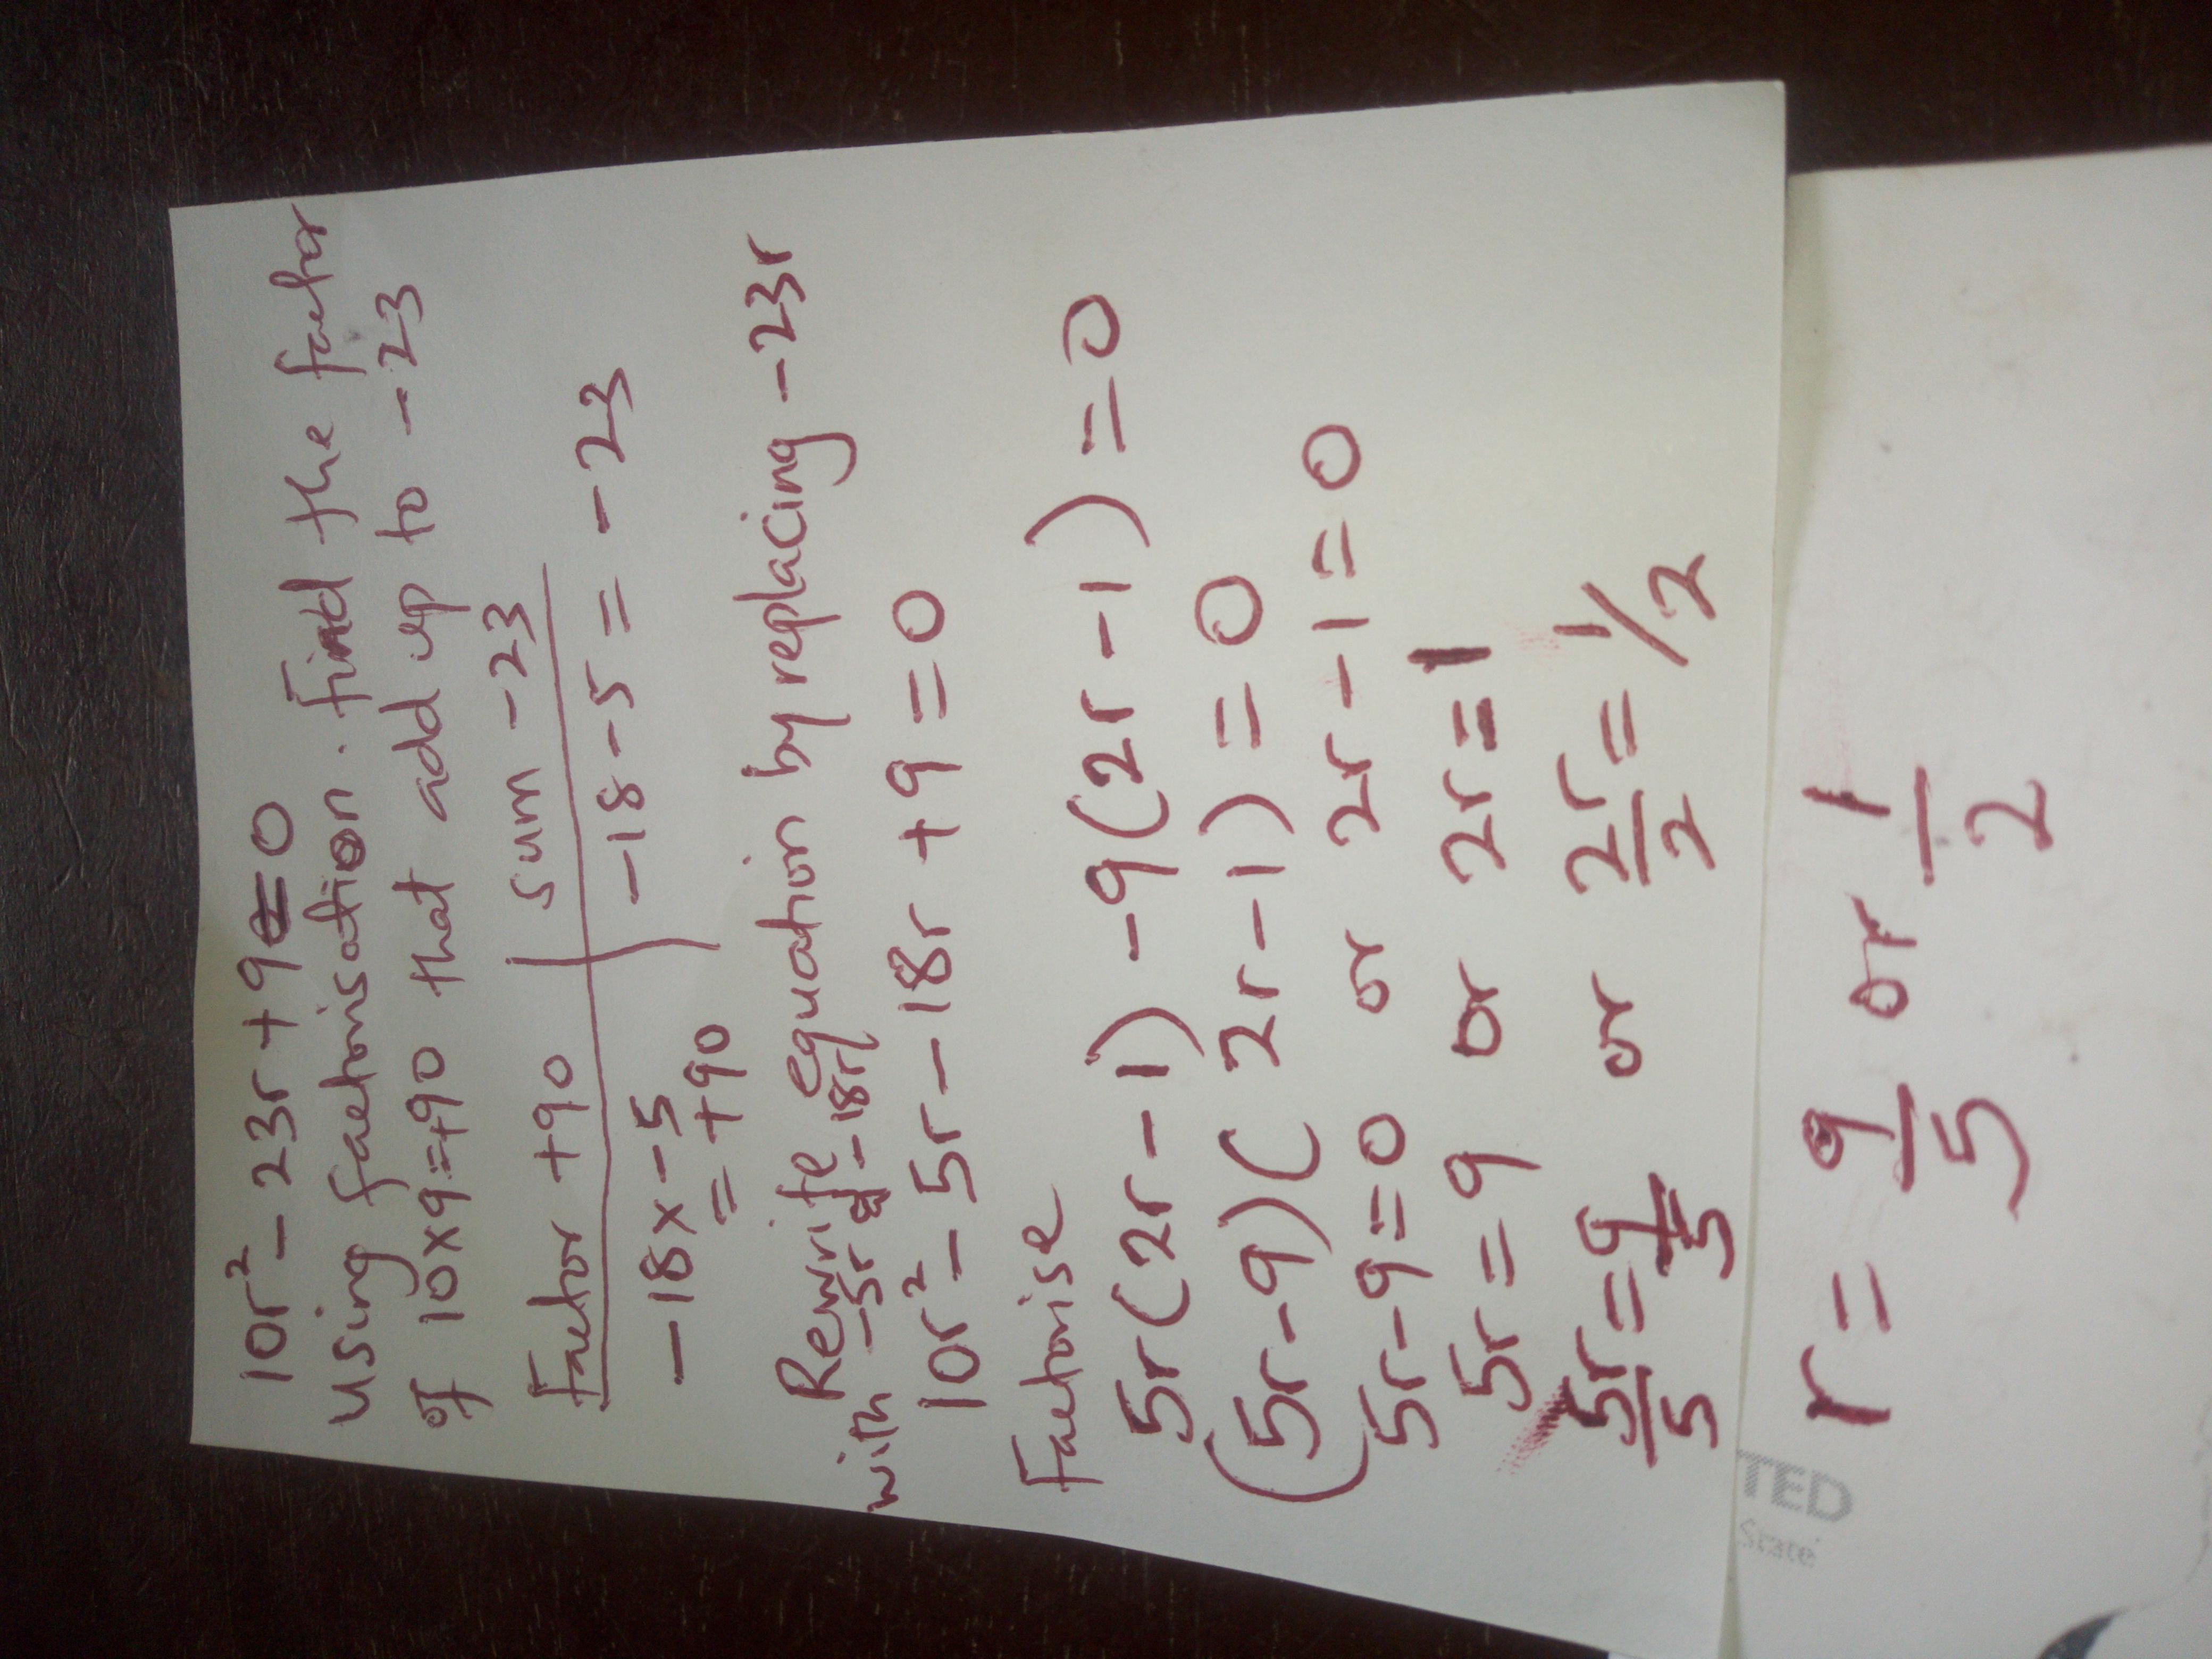 10r² - 23r + 9 = 0
using factorisation. Find the factor
of 10x9=+90 that add up to -23
Factor +90 | sum -23
-18 x -5 = +90 | -18 -5 = -23
Rewrite equation by replacing -23r
with -5r -18r
10r² - 5r - 18r + 9 = 0
Factorise
5r(2r - 1) - 9(2r - 1) = 0
(5r - 9)(2r - 1) = 0
5r - 9 = 0 or 2r - 1 = 0
5r = 9 or 2r = 1
5r/5 = 9/5 or 2r/2 = 1/2
r = 9/5 or 1/2
TED
State